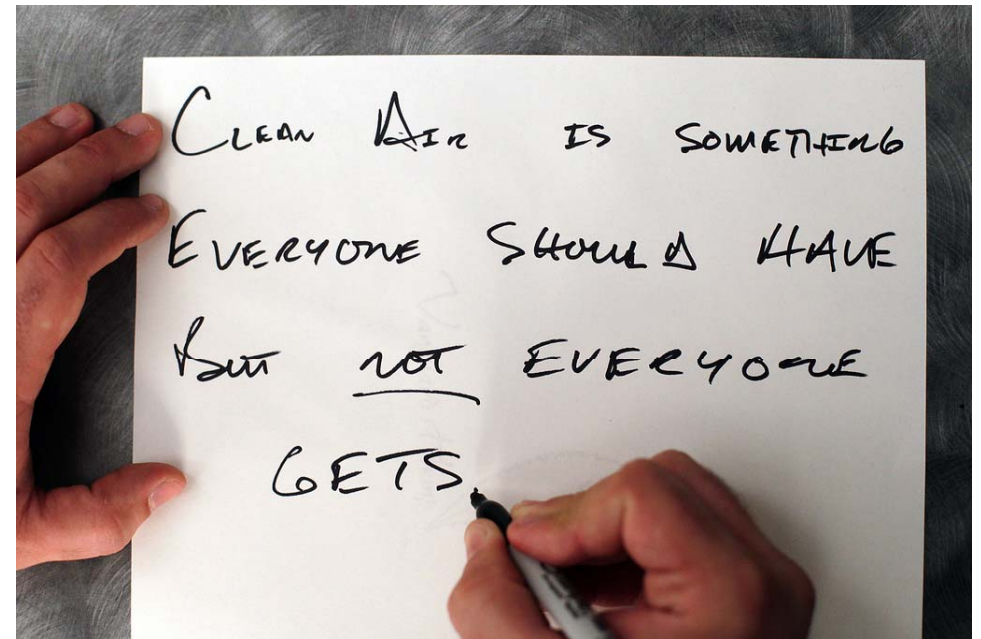 CLEAN AIR IS SOMETHING
EVERYONE SHOULD HAVE
BUT NOT EVERYONE
GETS.